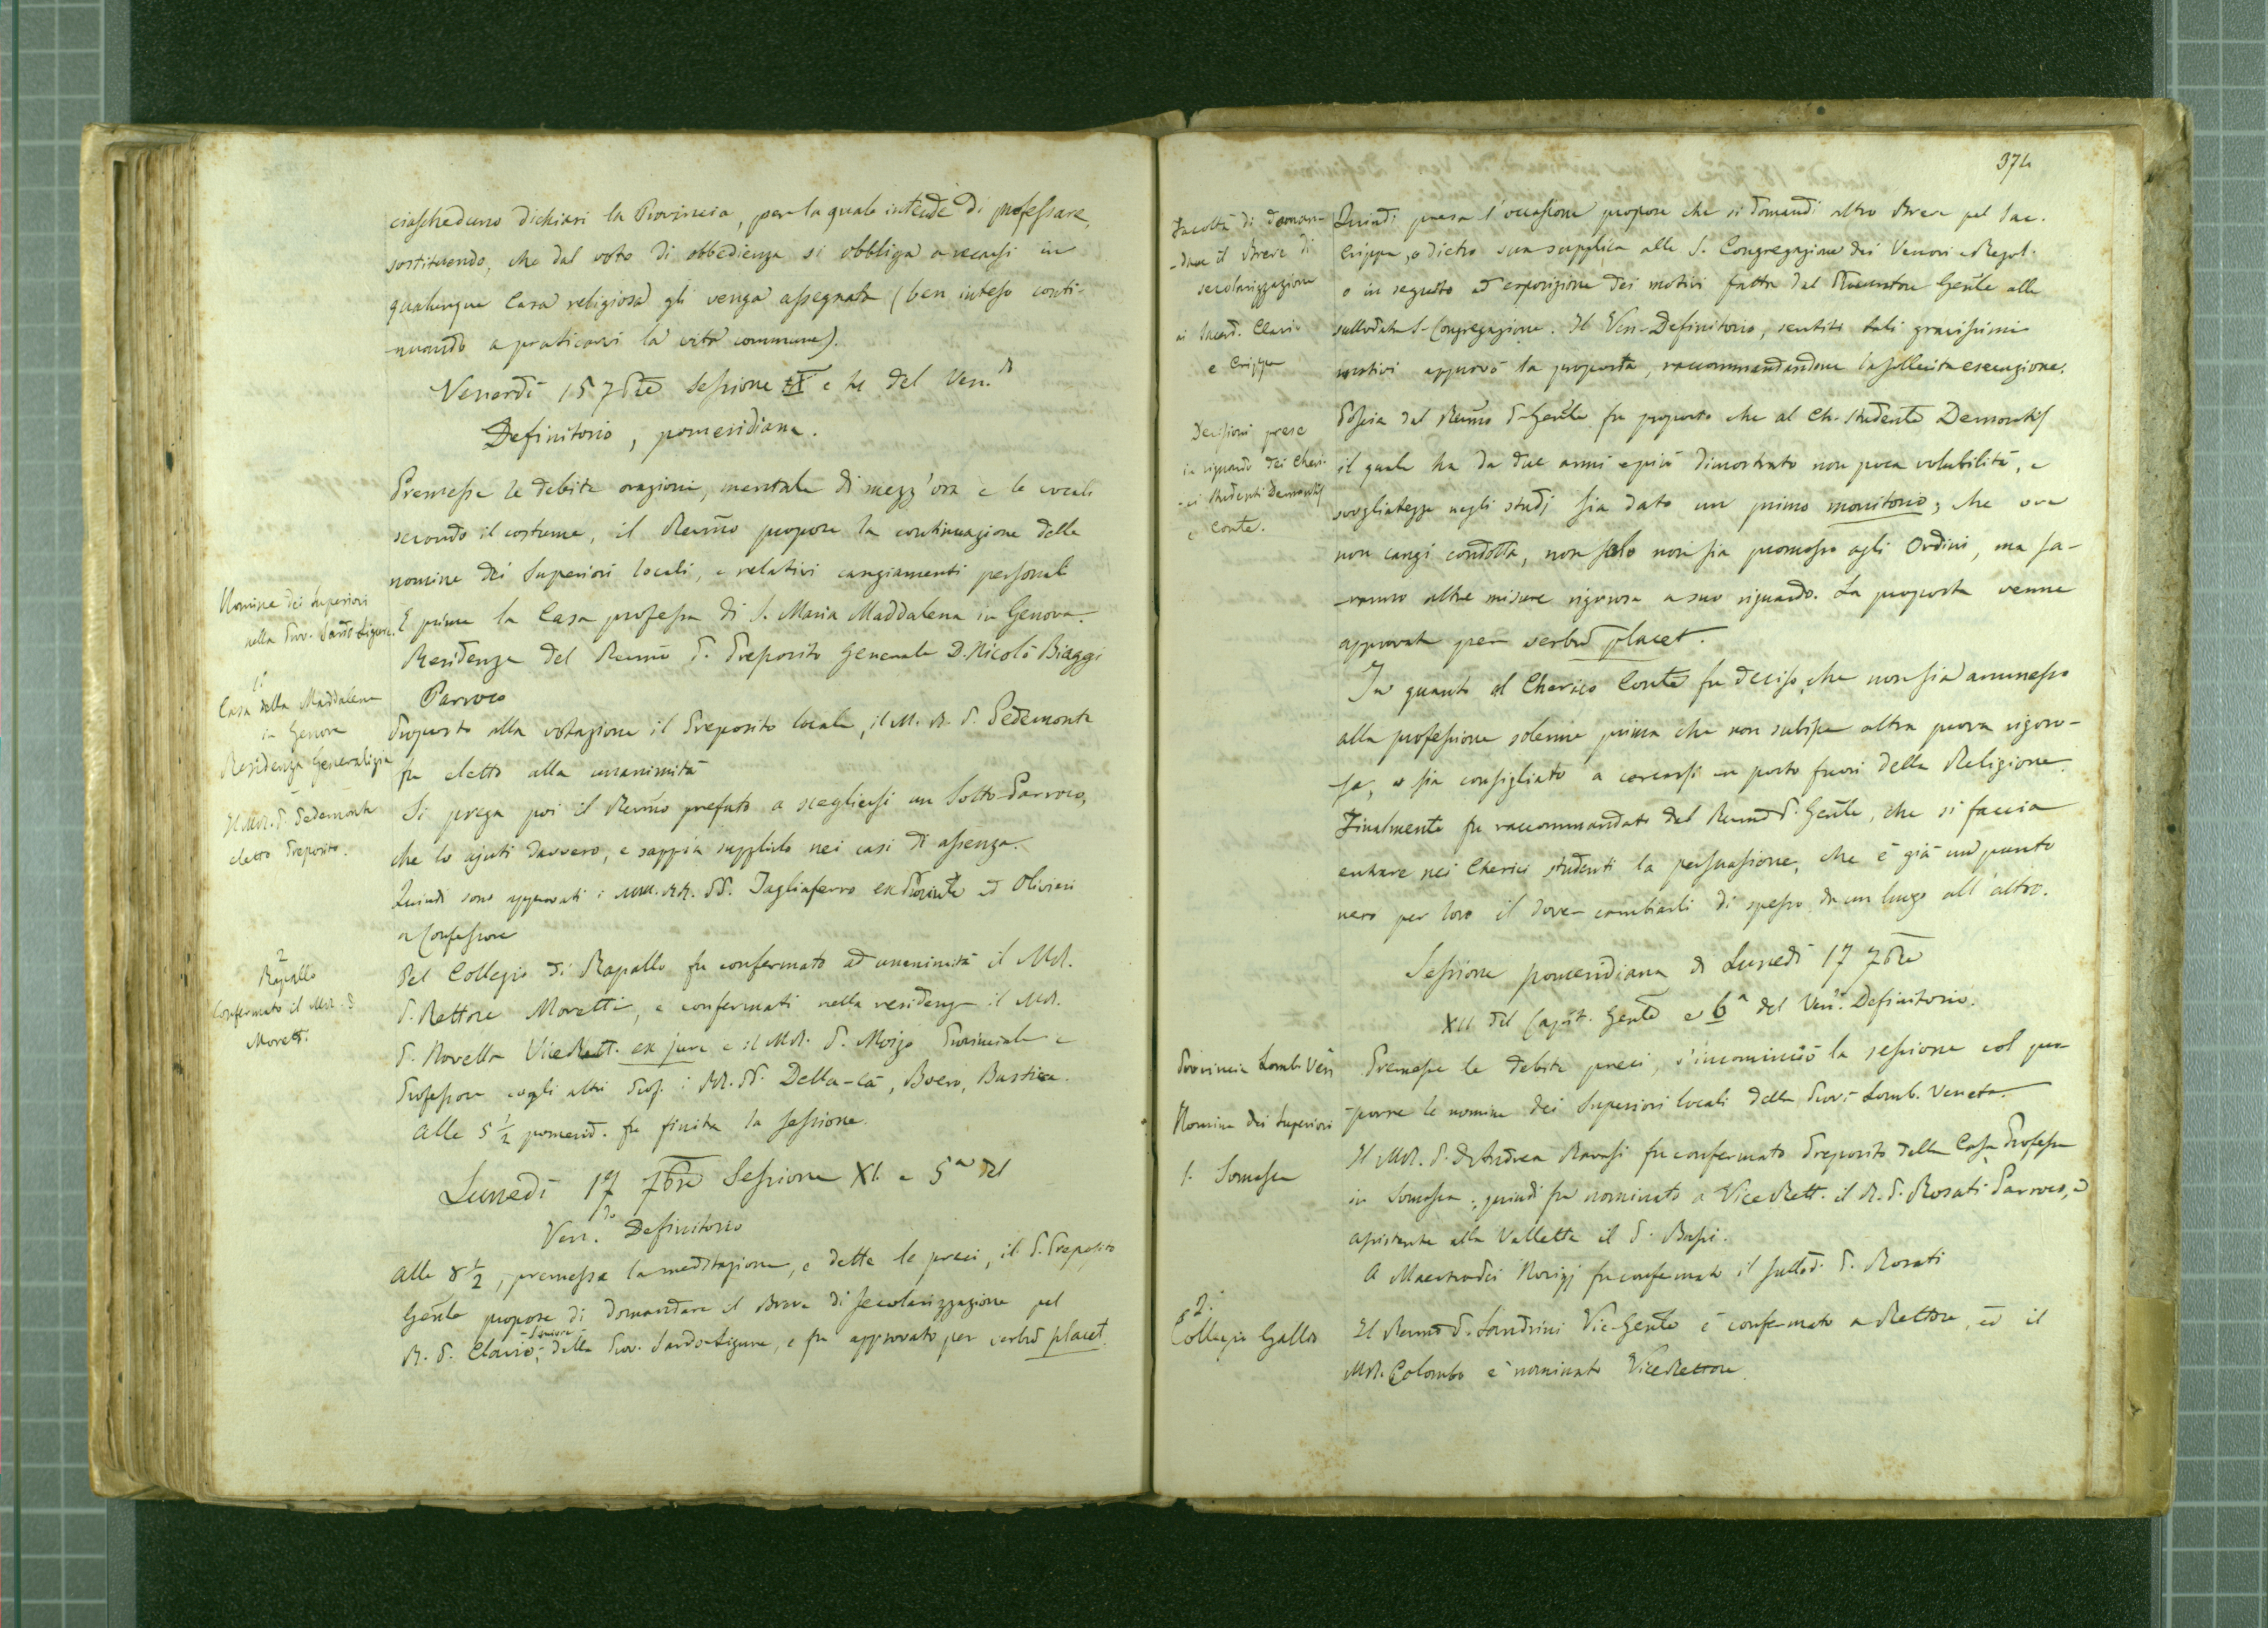 ciascheduno dichiari la Provincia, per la quale intende di professare,
sostituendo, che dal voto di obbedienza si obbliga a recarsi in
qualunque Casa religiosa gli venga assegnata (ben inteso conti-
nuando a praticarvi la vita commune).
Venerdì 15 7bre Sessione IX e 4 del Ven.do
Definitorio, pomeridiana.
Premesse le debite orazioni, mentale di mezz'ora e le vocali
secondo il costume, il Rev̄mo propose la continuazione delle
nomine dei Superiori locali, e relativi cangiamenti personali
Nomine dei Superiori
nella Prov. Sardo Ligure.
E prima la Casa professa di S. Maria Maddalena in Genova.
Residenza del Rev̄mo P. Preposito Generale D. Nicolò Biaggi
Parroco
1.°
Casa della Maddalena
in Genova
Residenza Generalizia
Il M.R. P. Pedemonte
eletto Preposito.
Proposto alla votazione il Preposito locale, il M. R. P. Pedemonte
fu eletto alla unanimità
Si prega poi il Rev̄mo prefato a scegliersi un Sotto-Parroco,
che lo ajuti davvero, e sappia supplirlo nei casi di assenza.
Quindi sono approvati i MM. RR. PP. Tagliaferro ex Prov̄le ed Olivieri
a Confessore
2
Rapallo
Confermato il M.R. P.
Moretti.
Del Collegio di Rapallo fu confermato ad unanimità il M.R.
P. Rettore Moretti, e confermati nella residenza il M.R.
P. Novella ViceRett. ex jure e il M.R. P. Moizo Provinciale e
Professore cogli altri Prof. i RR. PP. Della-cà, Boero, Bustica.
Alle 5 1/2 pomerid. fu finita la sessione.
Lunedì 17 7bre Sessione XI. e 5a del
Ven.do Definitorio
Alle 8 1/2, premessa la meditazione, e dette le preci, il P. Preposito
Gen̄le propose di domandare il Breve di secolarizzazione pel
R. P. Clavio, della Prov. Sardo-Ligure, e fu approvato per verbū placet.
374
Facoltà di doman-
-dare il Breve di
secolarizzazione
ai Sacerd. Clavio
e Crippa
Quindi presa l'occasione propose che si domandi altro Breve pel Sac.
Crippa, o dietro sua supplica alla S. Congregazione dei Vescovi e Regol.
o in seguito ad esposizione dei motivi fatta dal Procuratore Gen̄le alla
sullodata S. Congregazione. Il Ven. Definitorio, sentiti tali gravissimi
motivi approvò la proposta, raccommandandone la sollecita esecuzione.
Decisioni prese
in riguardo dei Cheri-
-ci studenti Demontis
e Conte.
Poscia dal Rev̄mo P. Gen̄le fu proposto che al Ch. studente Demontis
il quale ha da due anni e più dimostrato non poca volubilità, e
svogliatezza negli studj sia dato un primo monitorio, che ove
non cangi condotta, non solo non sia promosso agli Ordini, ma sa-
-ranno altre misure rigorose a suo riguardo. La proposta venne
approvata per verbū placet.
In quanto al Cherico Conte fu deciso, che non sia ammesso
alla professione solenne prima che non subisse altra prova rigoro-
sa, o sia consigliato a cercarsi un posto fuori della Religione.
Finalmente fu raccommandato dal Rev̄mo P. Gen̄le, che si faccia
entrare nei Cherici studenti la persuasione, che è già un punto
nero per loro il dover cambiarli di spesso da un luogo all'altro.
Sessione pomeridiana di Lunedì 17 7bre
XII del Capit. Gen̄le e 6a del Ven.do Definitorio.
Provincia Lomb. Ven
Premesse le debite preci, s'incominciò la sessione col pro-
Nomina dei Superiori
-porre le nomine dei Superiori locali della Prov. Lomb. Veneta.
1. Somasca
Il M.R. P. D. Andrea Ravasi fu confermato Preposito della Casa Professa
in Somasca; quindi fu nominato a ViceRett. il R. P. Rosati Parroco, e
assistente alla Valletta il P. Bassi.
A Maestro dei Novizj fu confermato il sullod. P. Rosati
2.
Collegio Gallio
Il Rev̄mo P. Sandrini Vic-Gen̄le è confermato a Rettore, ed il
M.R. Colombo è nominato ViceRettore.